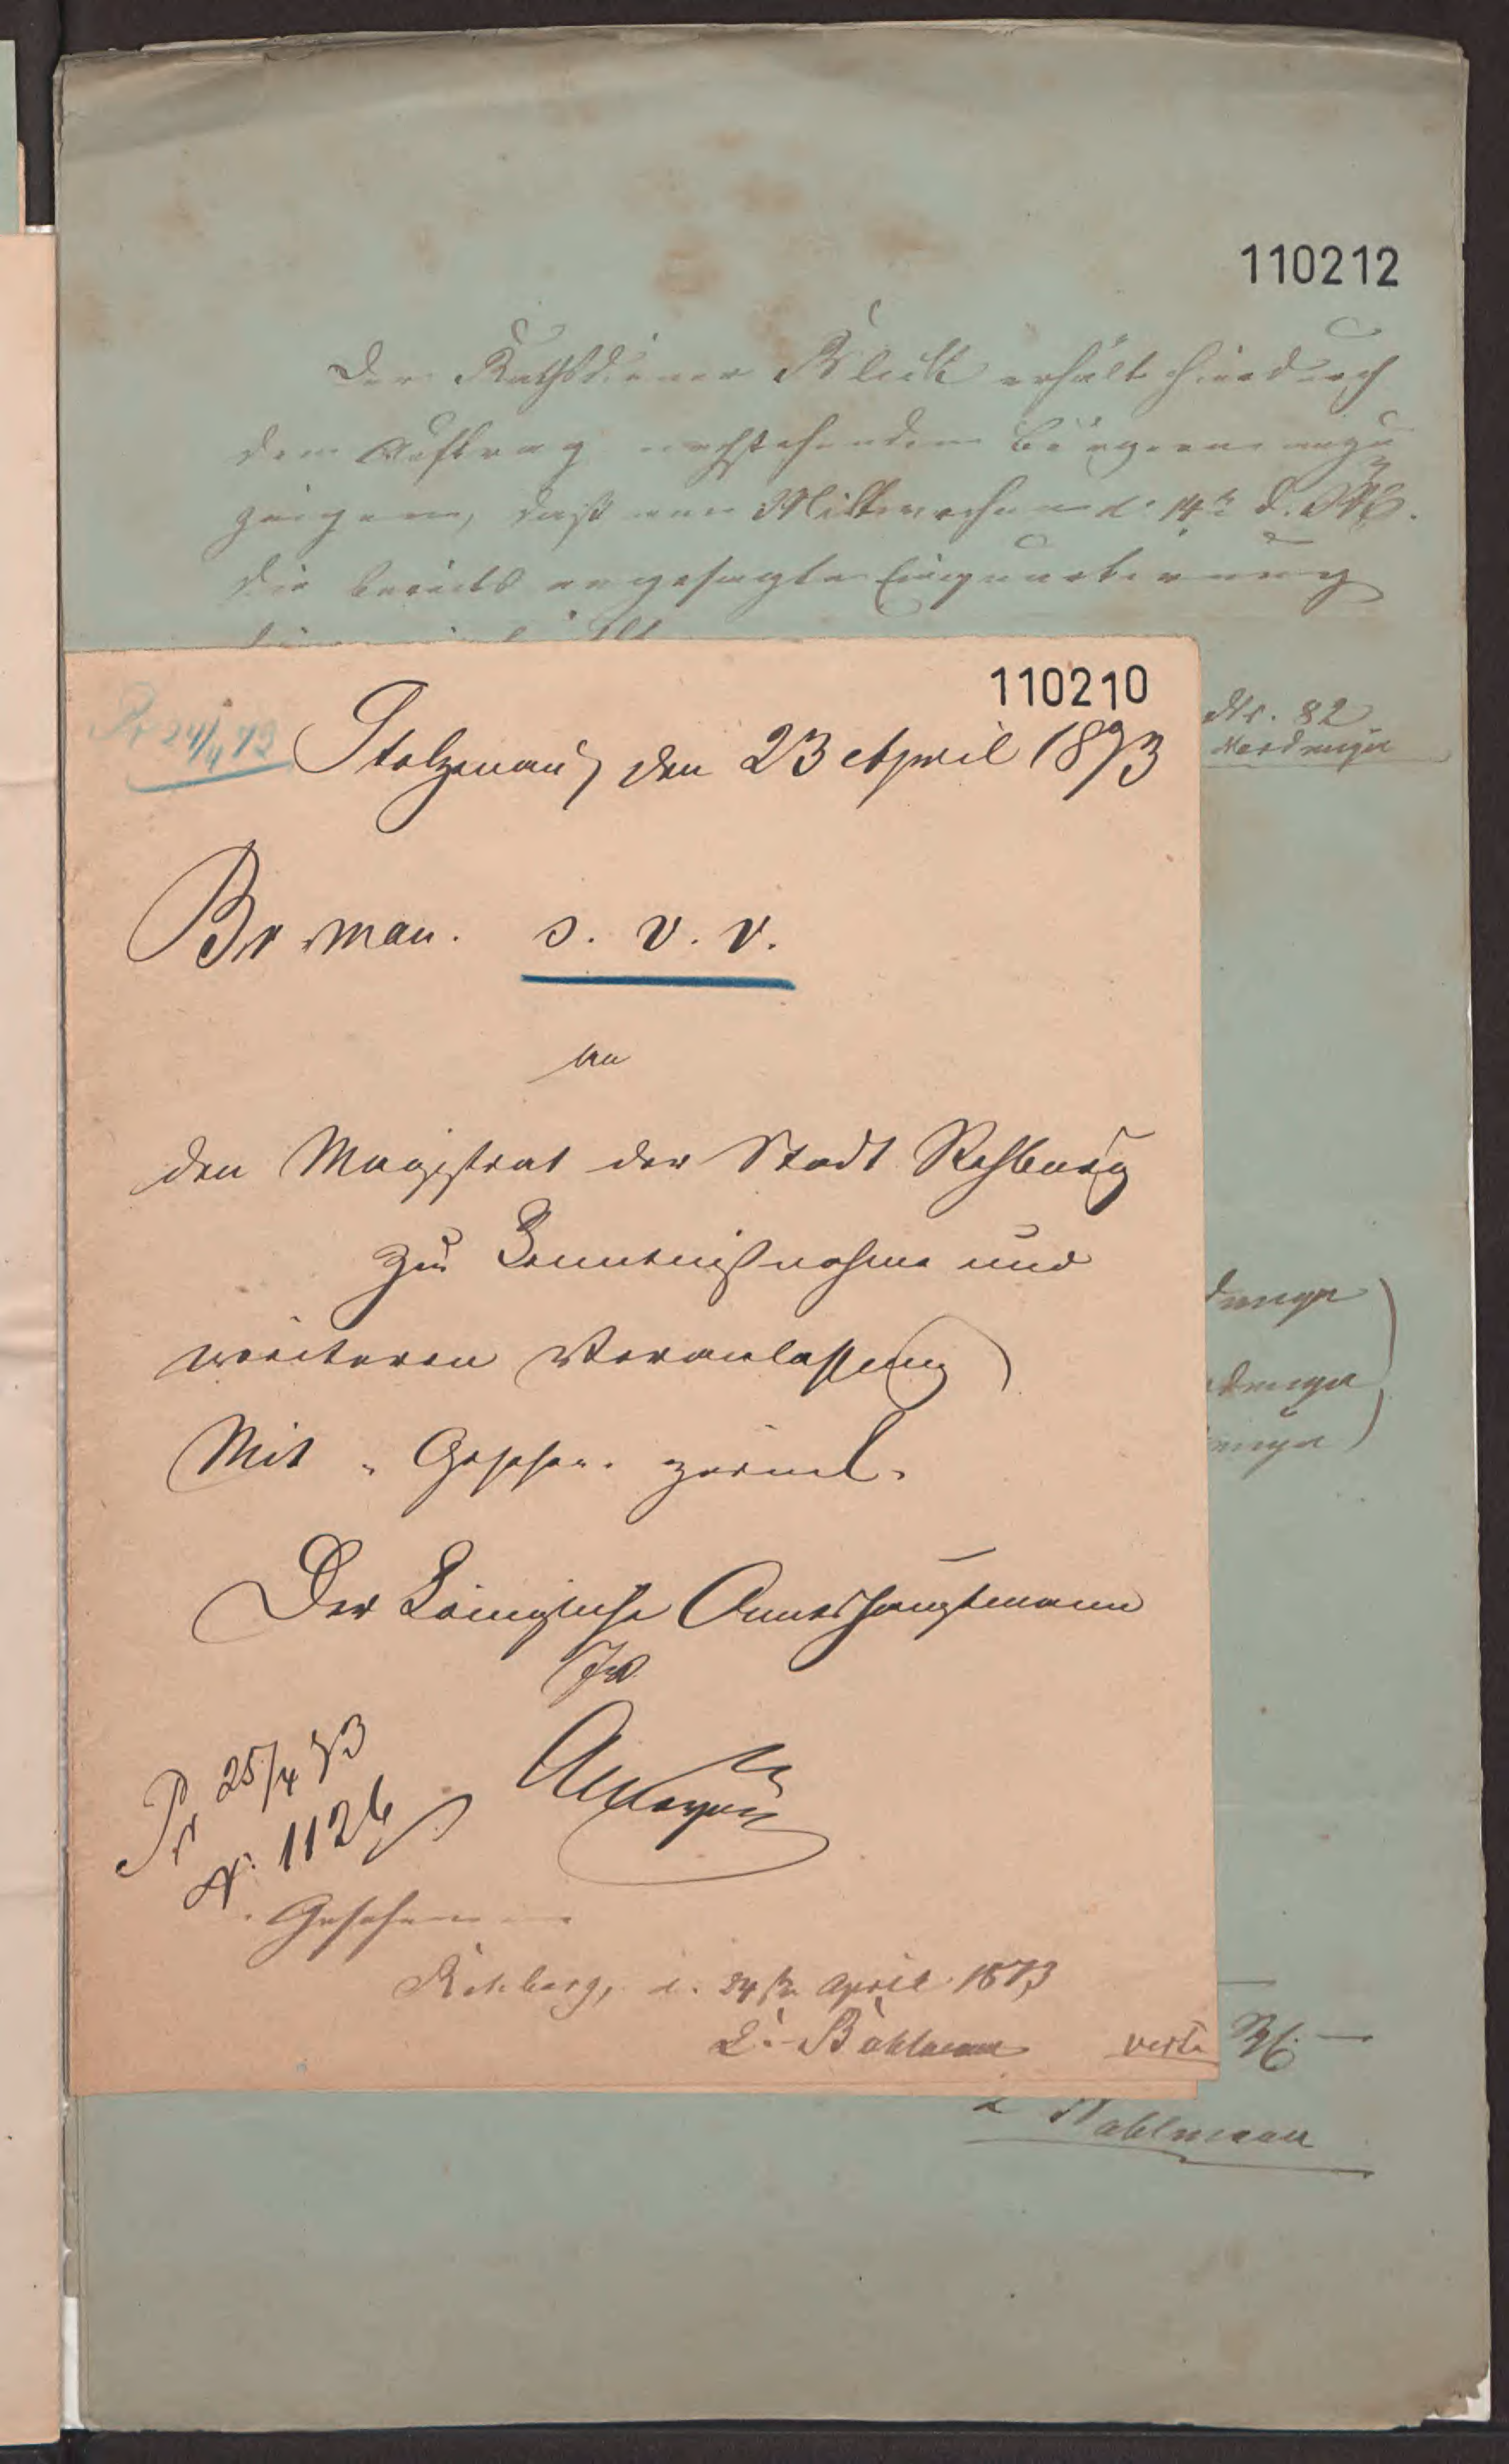 110212
Der Rathsdiener Block erhält hierdurch
den Auftrag nachstehenden Bürgern anzu
zeigen, daß am Mittwochen d. 14t d. Mts.
die bereits angesagte Einquartierung
110210
Nr. 82
Pr 24/4 73
Stolzenau, den 23 April 1873
Br. man. s. v. r.
an
den Magistrat der Stadt Rehburg
zur Kenntnißnahme und
weiteren Veranlassung
Mit " Gesehen " zurück.
Der Königliche Amtshauptmann
Pr 25/4 73
N. 1126
Gesehen
Rehburg, d. 24 ten April 1873
Bahlmann
verte
Bahlmann